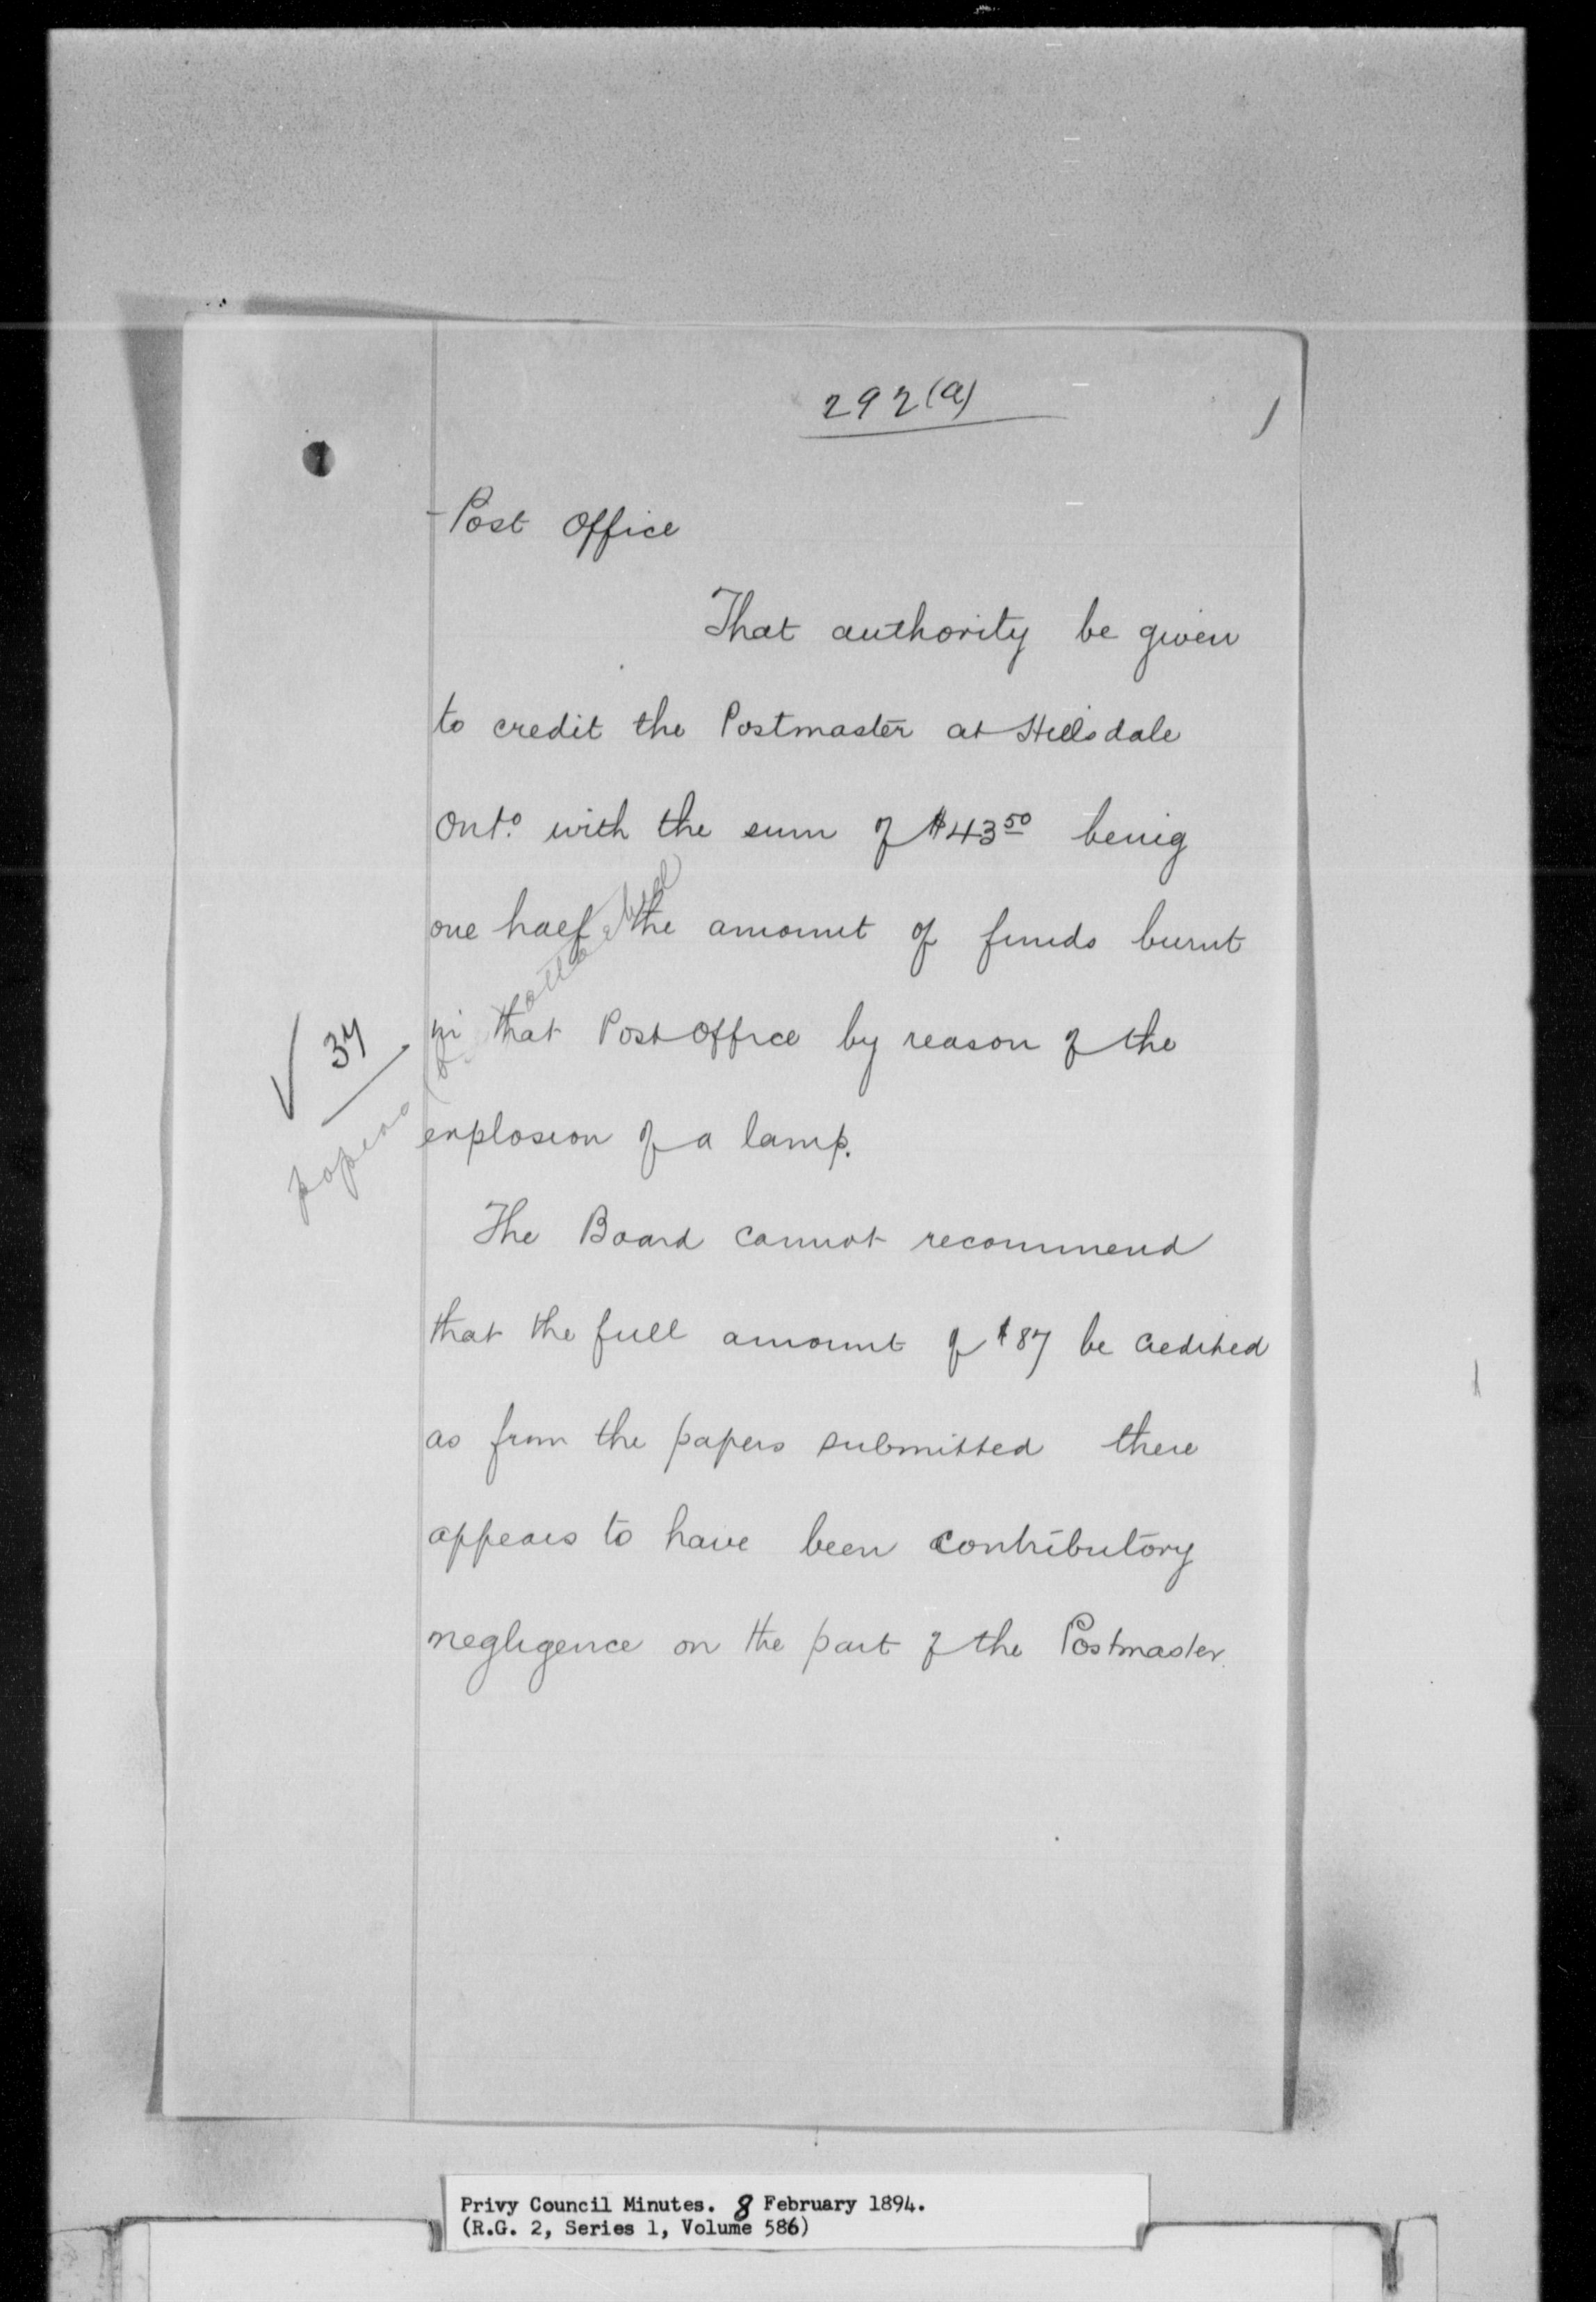 292(a)
1
Post Office
That authority be given
to credit the Postmaster at Hillsdale
Ont.º with the sum of $43 50 being
one half the amount of funds burnt
in that Post Office by reason of the
explosion of a lamp.
The Board cannot recommend
that the full amount of $87 be credited
as from the papers submitted there
appears to have been contributory
negligence on the part of the Postmaster.
papers
Privy Council Minutes. 8 February 1894.
(R.G. 2, Series 1, Volume 586)